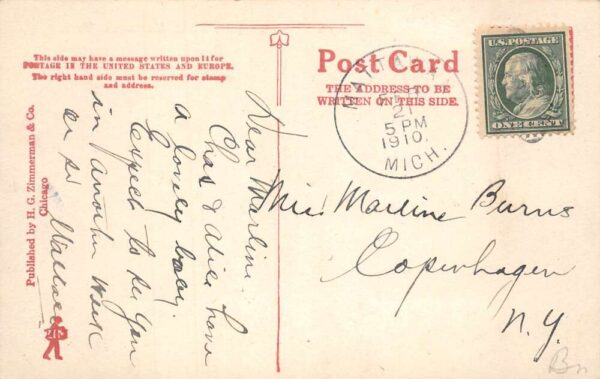 This side may have a message written upon it for
POSTAGE IN THE UNITED STATES AND EUROPE.
The right hand side must be reserved for stamp
and address.
Post Card
THE ADDRESS TO BE
WRITTEN ON THIS SIDE.
U.S. POSTAGE
ONE CENT
21
5 PM
1910.
MICH.
Dear Marline.
Chas & Alice have
a lovely baby.
Expect to see you
in another week
or so Wallace
Miss Marline Burns
Copenhagen
N.Y.
Published by H. G. Zimmerman & Co.
Chicago